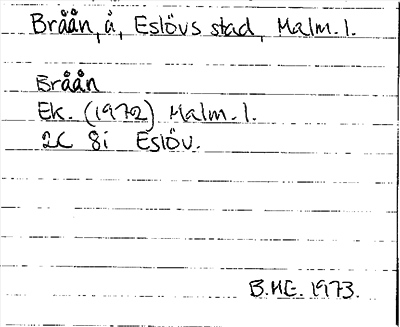 Bråån, å, Eslövs stad, Malm. l.
Bråån
Ek. (1972) Malm. l.
2C 8i Eslöv.
B.HE. 1973.